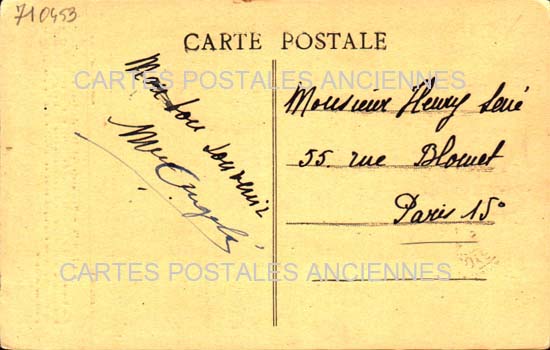 710453
CARTE POSTALE
CARTES POSTALES ANCIENNES
Mon bon souvenir
Monsieur Henry
55 rue Blomet
Paris 15°
CARTES POSTALES ANCIENNES